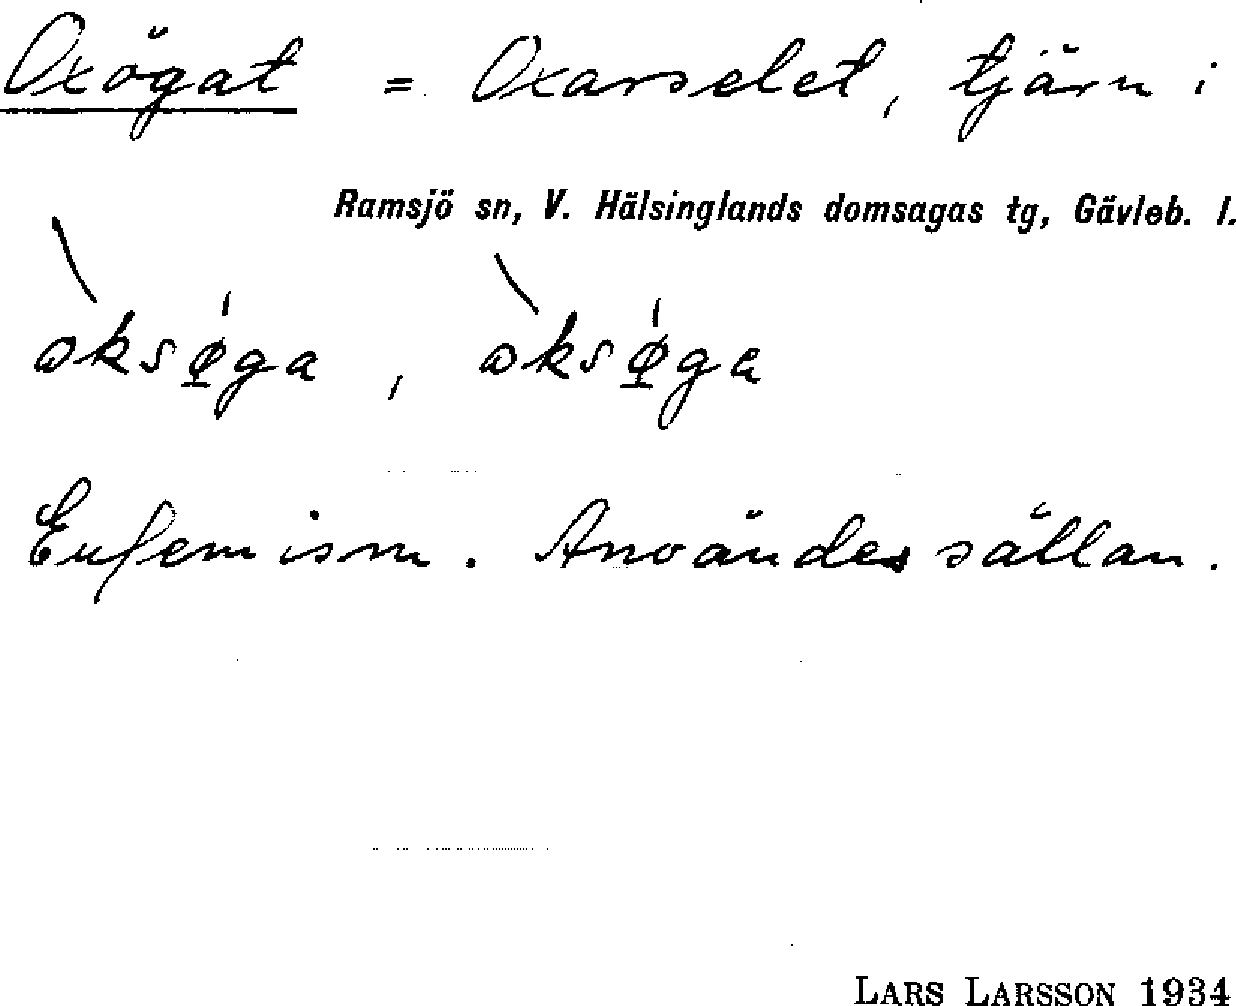 Oxögat = Oxarselet, tjärn i
Ramsjö sn, V. Hälsinglands domsagas tg, Gävleb. l.
Eufemism. Användes sällan.
LARS LARSSON 1934